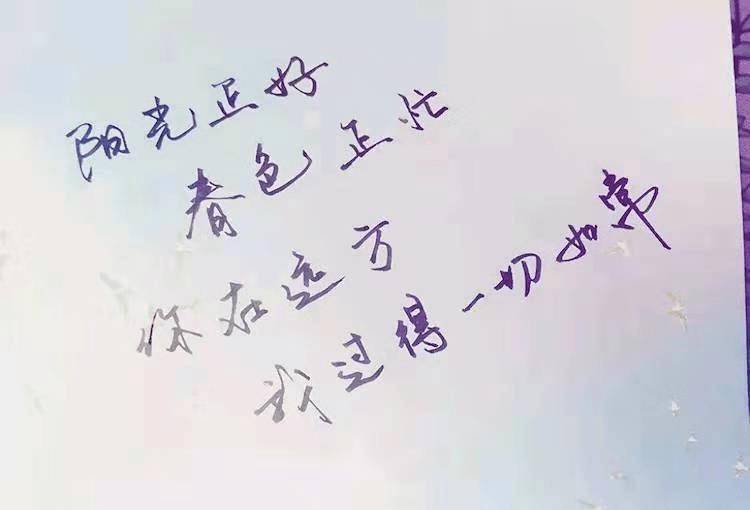 阳光正好
春色正忙
你在远方
我过得一切如常